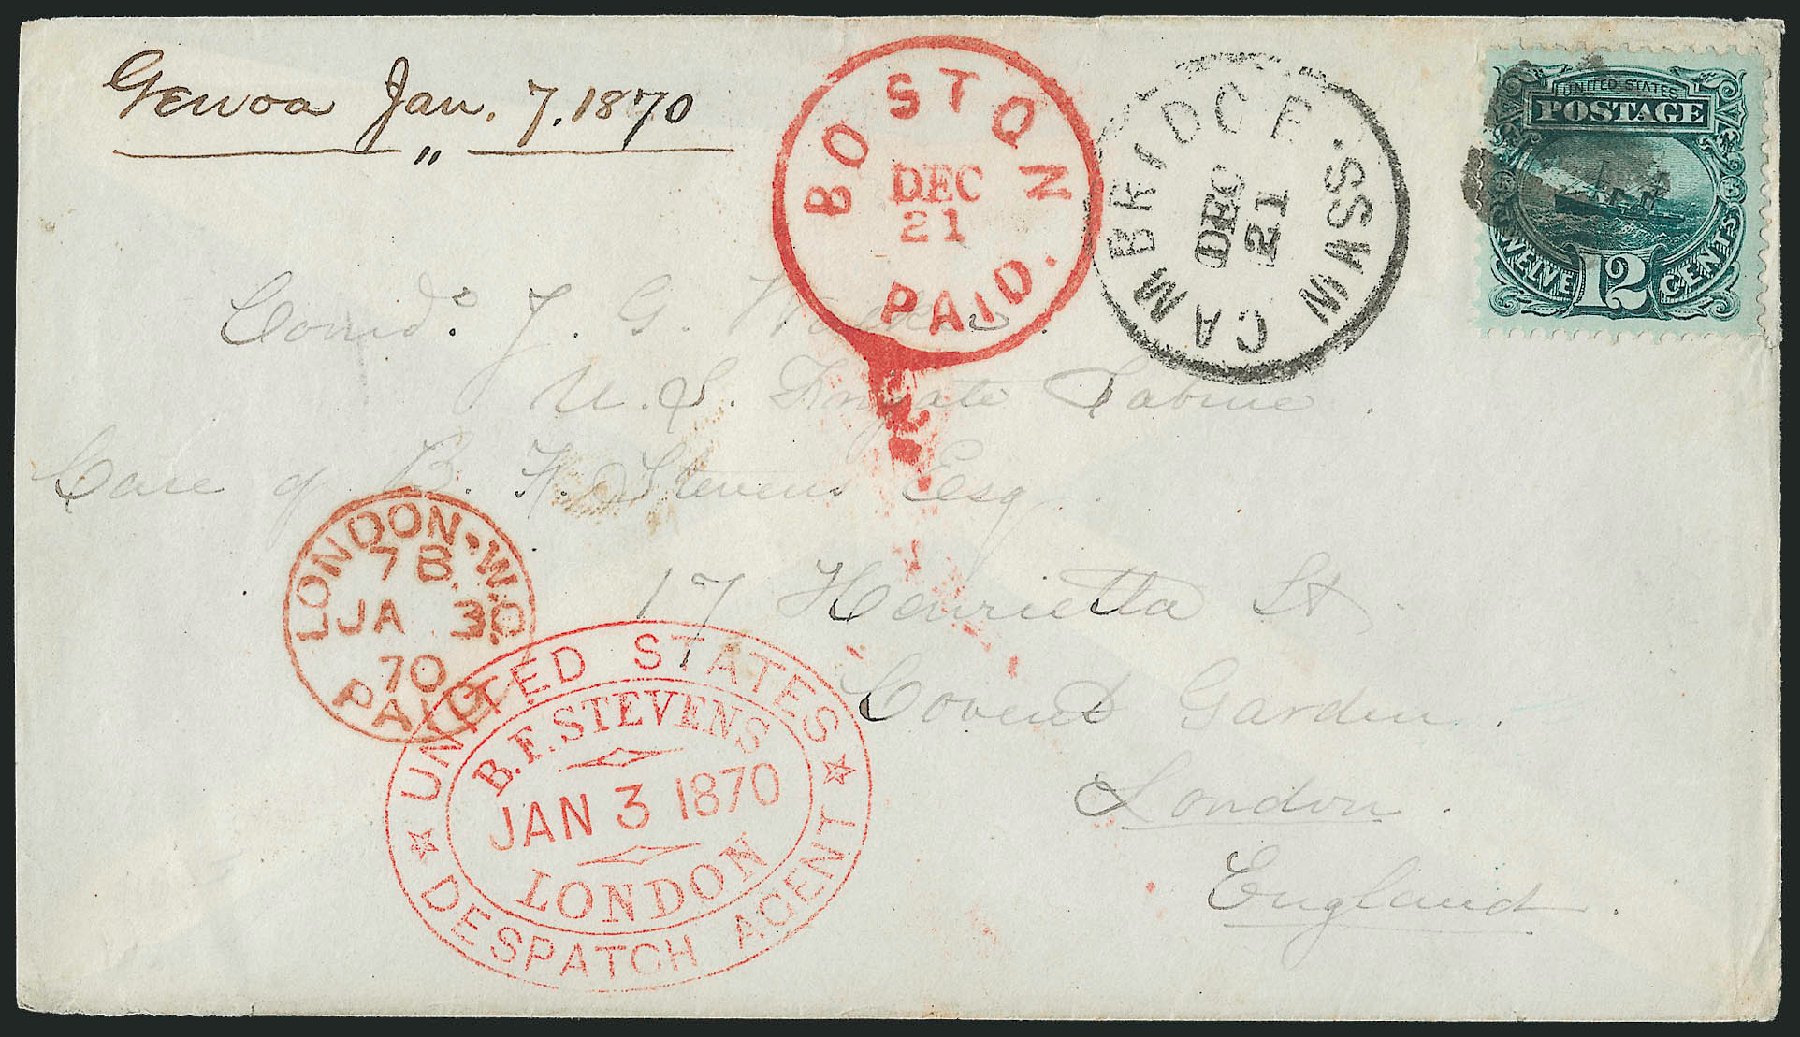 Genoa Jan. 7. 1870
"
BOSTON
DEC
21
PAID.
CAMBRIDGE. MASS.
DEC
21
UNITED STATES
POSTAGE
TWELVE 12 CENTS
Comdr. J. G. Walker.
U. S. Frigate Sabine.
Care of B. F. Stevens Esq.
17 Henrietta St.
Covent Garden.
London.
England.
LONDON·W.C
7B.
JA 3.
70
PAID
UNITED STATES
B.F. STEVENS
JAN 3 1870
LONDON
DESPATCH AGENT